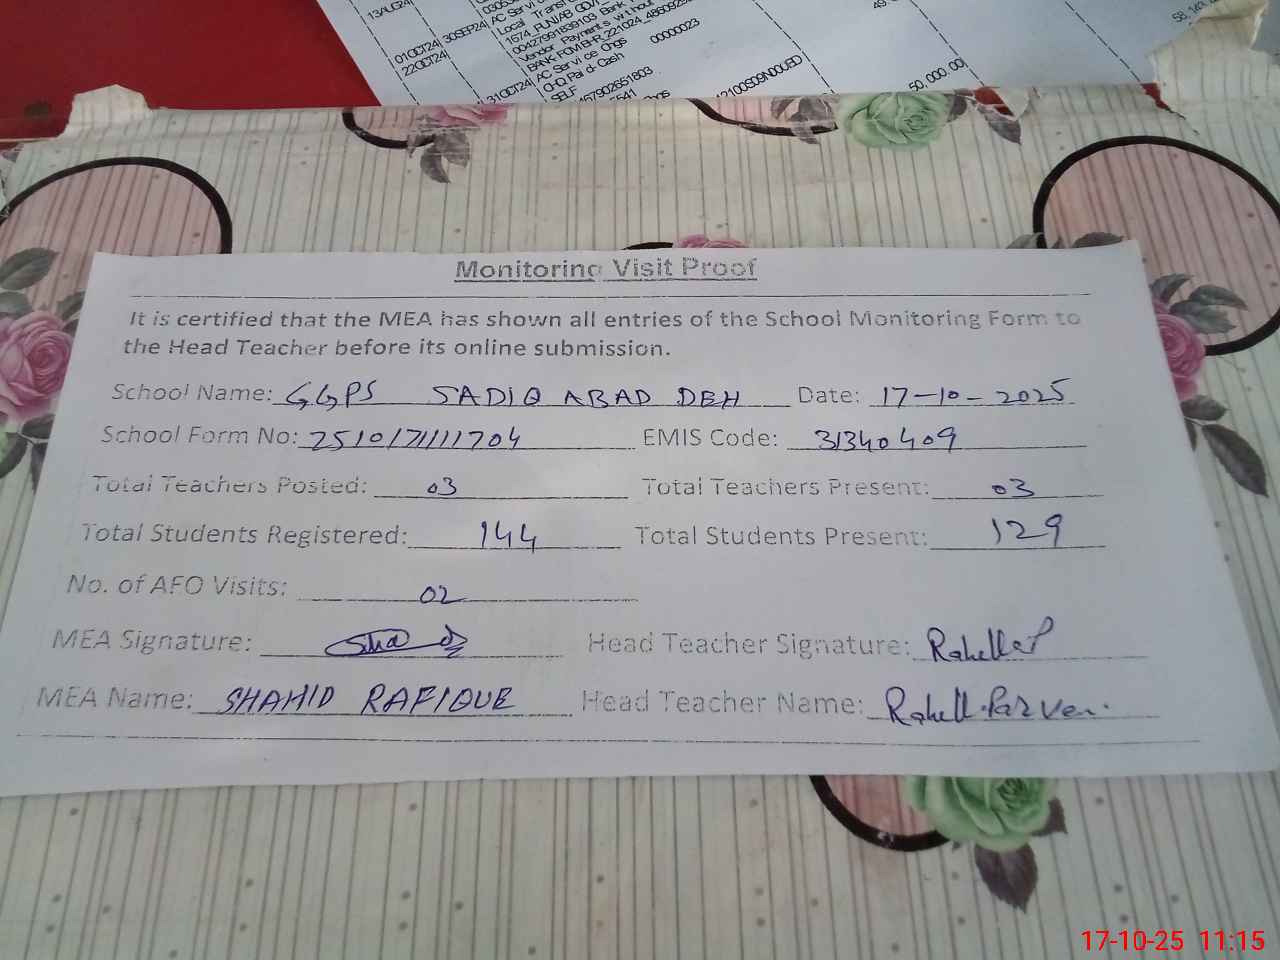 13AUG24
01OCT24 30SEP24
22OCT24
31OCT24
AC Servi
Local Transf
1674_PUNJAB GOV
00427991839103 Bank
Vendor Payments withou
AC Service Chgs
CHQ Paid-Cash 00000023
SELF
50,000.00
Monitoring Visit Proof
It is certified that the MEA has shown all entries of the School Monitoring Form to
the Head Teacher before its online submission.
School Name: GGPS SADIQ ABAD DEH Date: 17-10-2025
School Form No: 2510171111704 EMIS Code: 31340409
Total Teachers Posted: 03 Total Teachers Present: 03
Total Students Registered: 144 Total Students Present: 129
No. of AFO Visits: 02
MEA Signature: Head Teacher Signature:
MEA Name: SHAHID RAFIQUE Head Teacher Name:
17-10-25 11:15